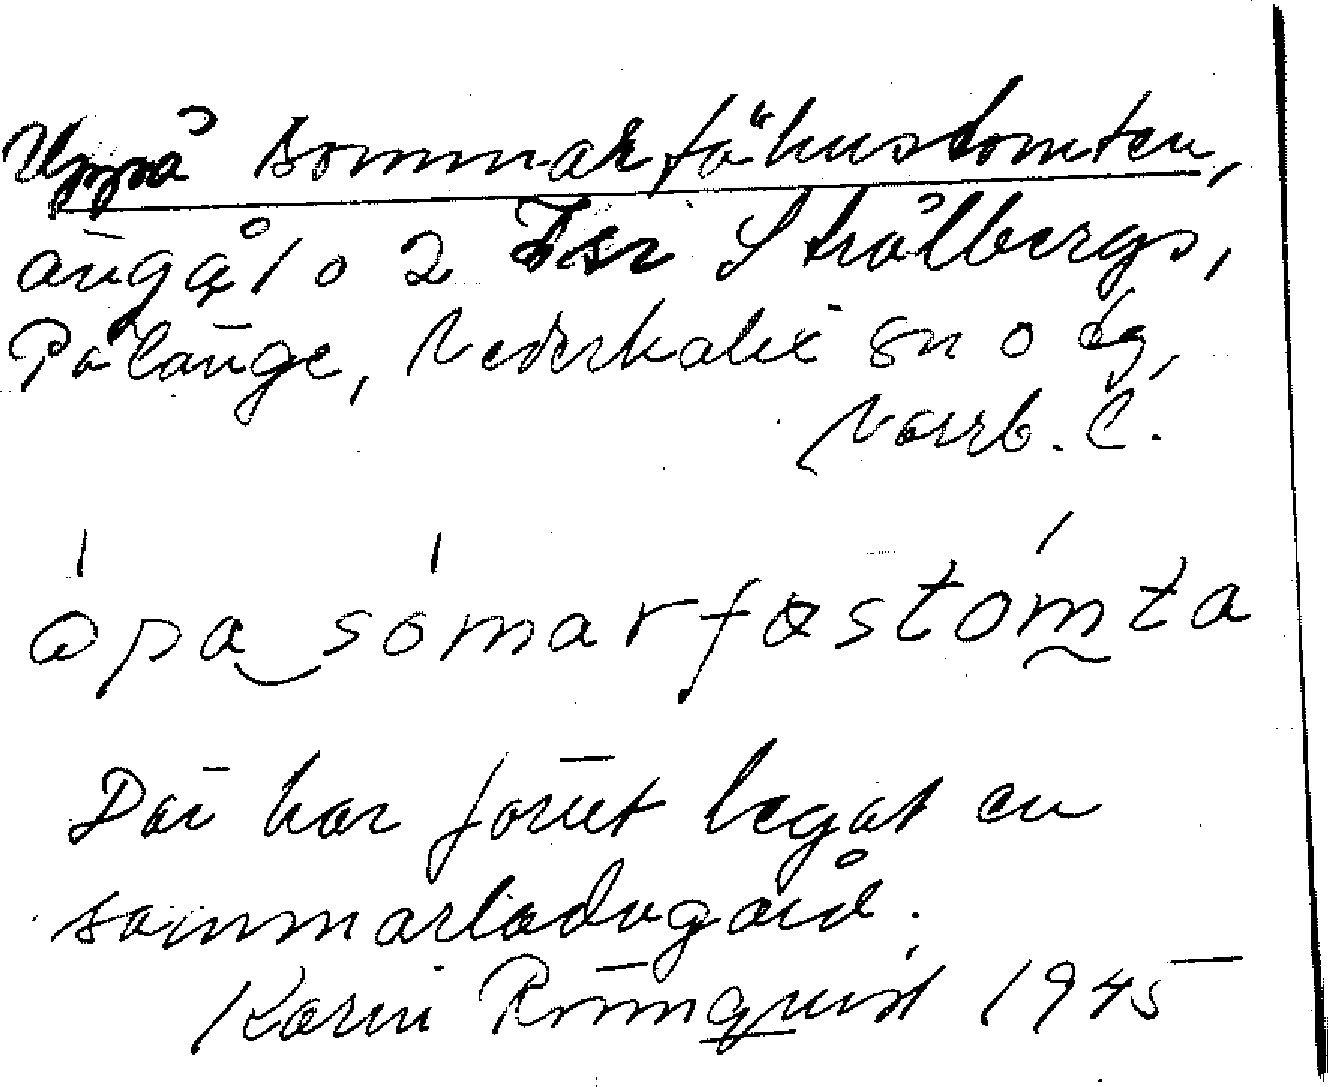 Uppå Sommarfähustomten,
ängar o 2 Isr Strålbergs,
Pålänge, Nederkalix sn o tg,
Norrb. l.
òpa sómarfæstómta
Där har förut legat en
sommarladugård.
Karin Rönnquist 1945